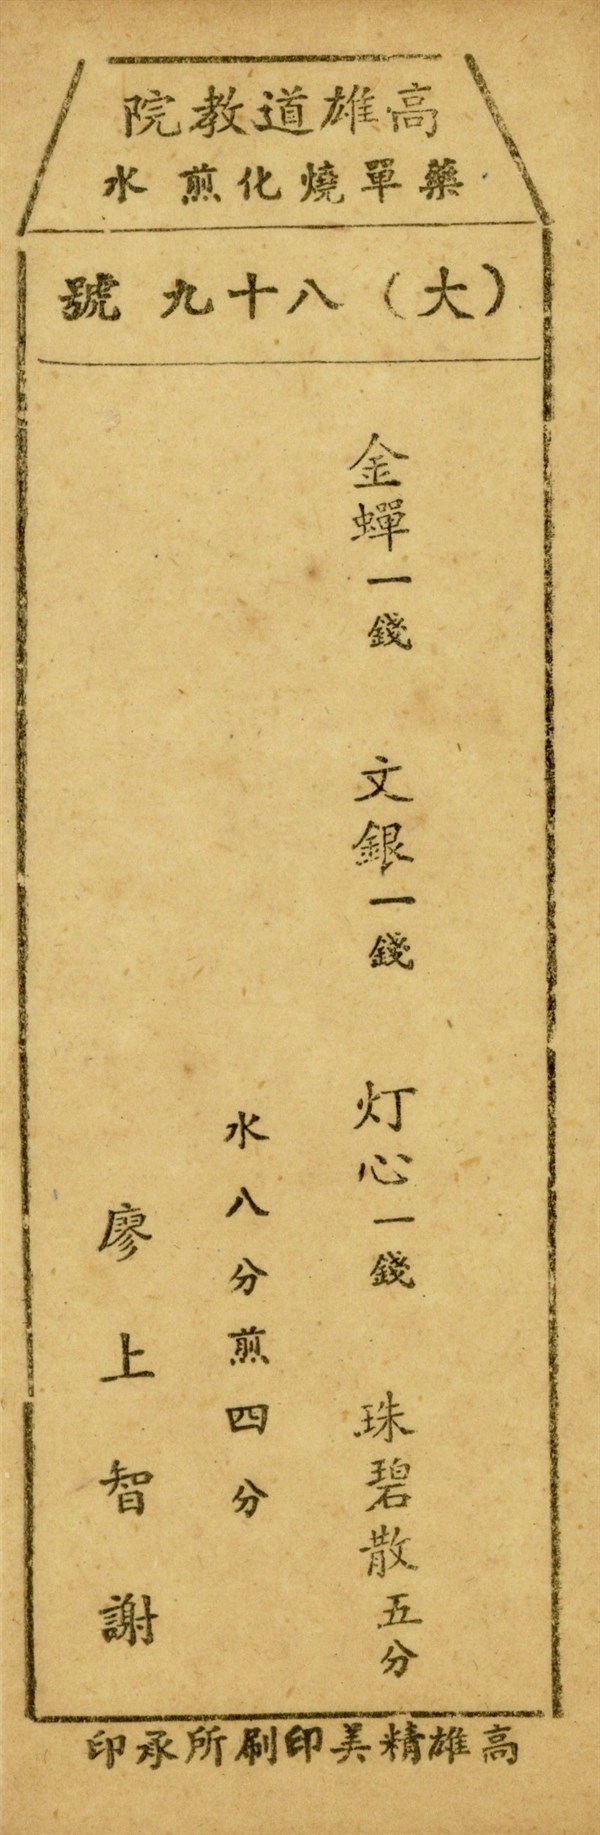 高雄道教院
藥單燒化煎水
（大）八十九號
金蟬一錢　文銀一錢　灯心一錢　珠碧散五分
水八分煎四分
廖上智謝
高雄精美印刷所承印